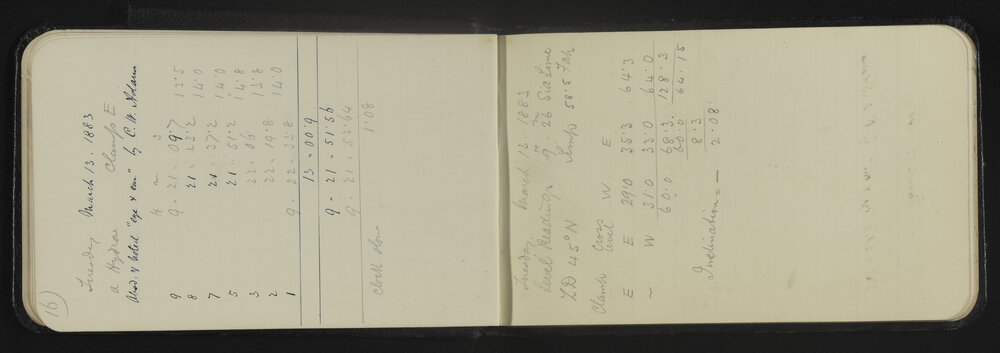 16)
Tuesday March 13. 1883
α Hydrae Clamp E
Obsd. & noted "eye & ear" by C. W. Adams
H m s
9 9 " 21 " 09.7 13.5
8 21 " 23.2 14.0
7 21 " 37.2 14.0
5 21 " 51.2 14.8
3 22 " 06. 13.8
2 22 " 19.8 14.0
1 9 " 22 " 33.8
13 " 00.9
9 " 21 " 51.56
9 " 21 " 52.64
Clock slow 1.08
Tuesday March 13. 1883
Level Readings 9 26 Sid time
ZD 45° N Temp 58.5 Fah
Clamp Cross level W E
E E 29.0 35.3 . 64.3
" W 31.0 33.0 64.0
60.0 68.3 128.3
60.0 64.15
8.3
Inclination = - 2.08